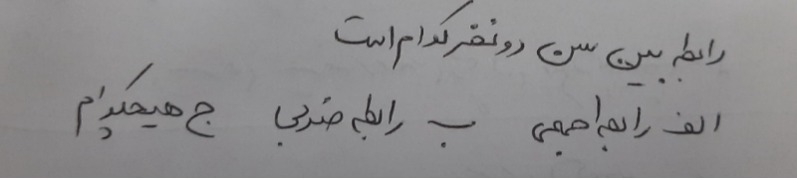 رابطه بین سن دو نفر کدام است
الف رابطه جمعی ب رابطه ضربی ج هیچکدام